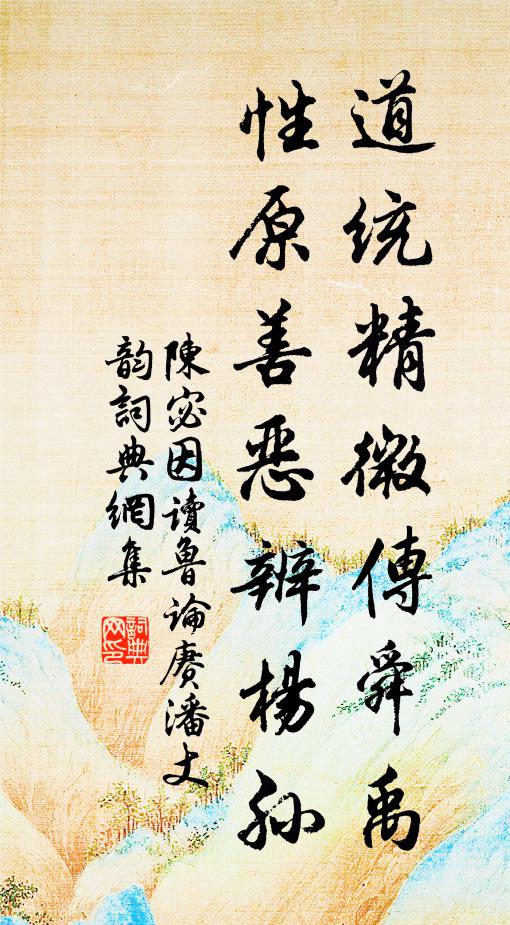 道統精微傳舜禹
性原善惡辨楊孙
陳宓因讀魯論賡潘丈
韵詞典網集
詞典
网印